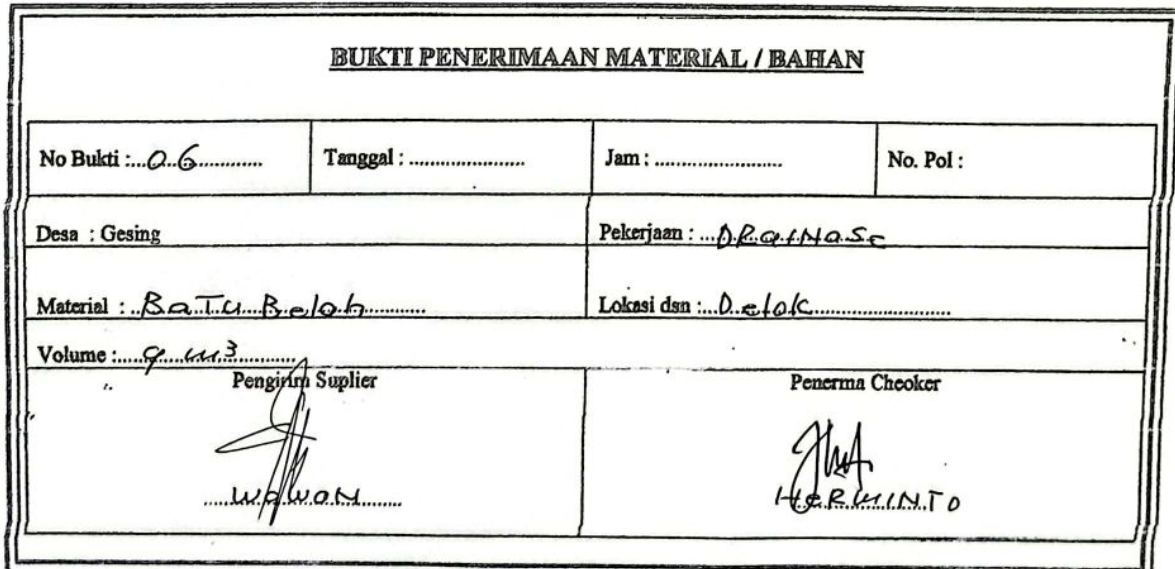 BUKTI PENERIMAAN MATERIAL / BAHAN
No Bukti :...06............ Tanggal : ...................... Jam : ........................ No. Pol :
Desa : Gesing Pekerjaan : ...DRaiNaSe
Material : ..BaTu Belah............ Lokasi dsn :...Delok..........................
Volume :.....9 m³...........
Pengirim Suplier Penerma Cheoker
......WaWaN........ HERMINTO